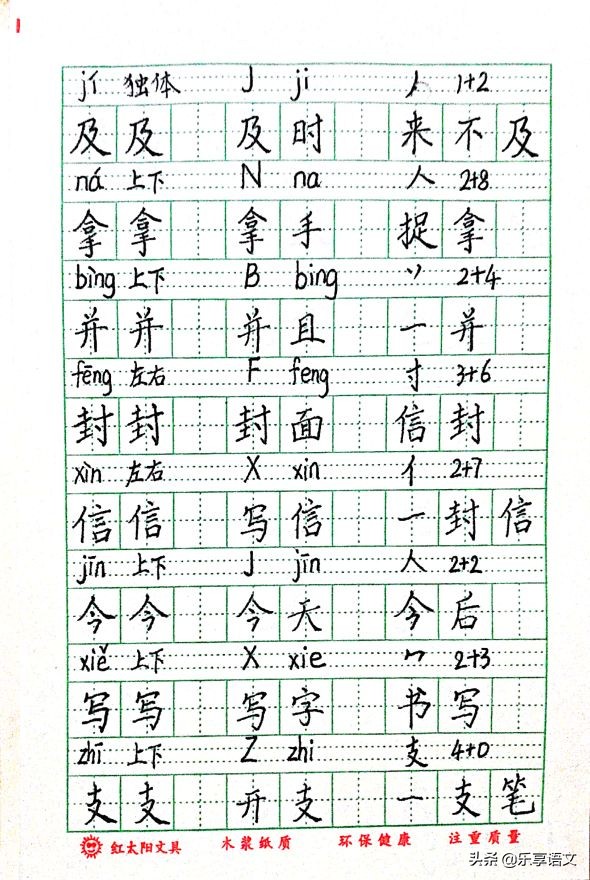 jí 独体 J ji 丿 1+2
及及 及时 来不及
ná 上下 N na 人 2+8
拿拿 拿手 捉拿
bìng 上下 B bing 丷 2+4
并并 并且 一并
fēng 左右 F feng 寸 3+6
封封 封面 信封
xìn 左右 X xin 亻 2+7
信信 写信 一封信
jīn 上下 J jīn 人 2+2
今今 今天 今后
xiě 上下 X xie 冖 2+3
写写 写字 书写
zhī 上下 Z zhi 支 4+0
支支 开支 一支笔
红太阳文具 木浆纸质 环保健康 注重质量
头条 @乐享语文